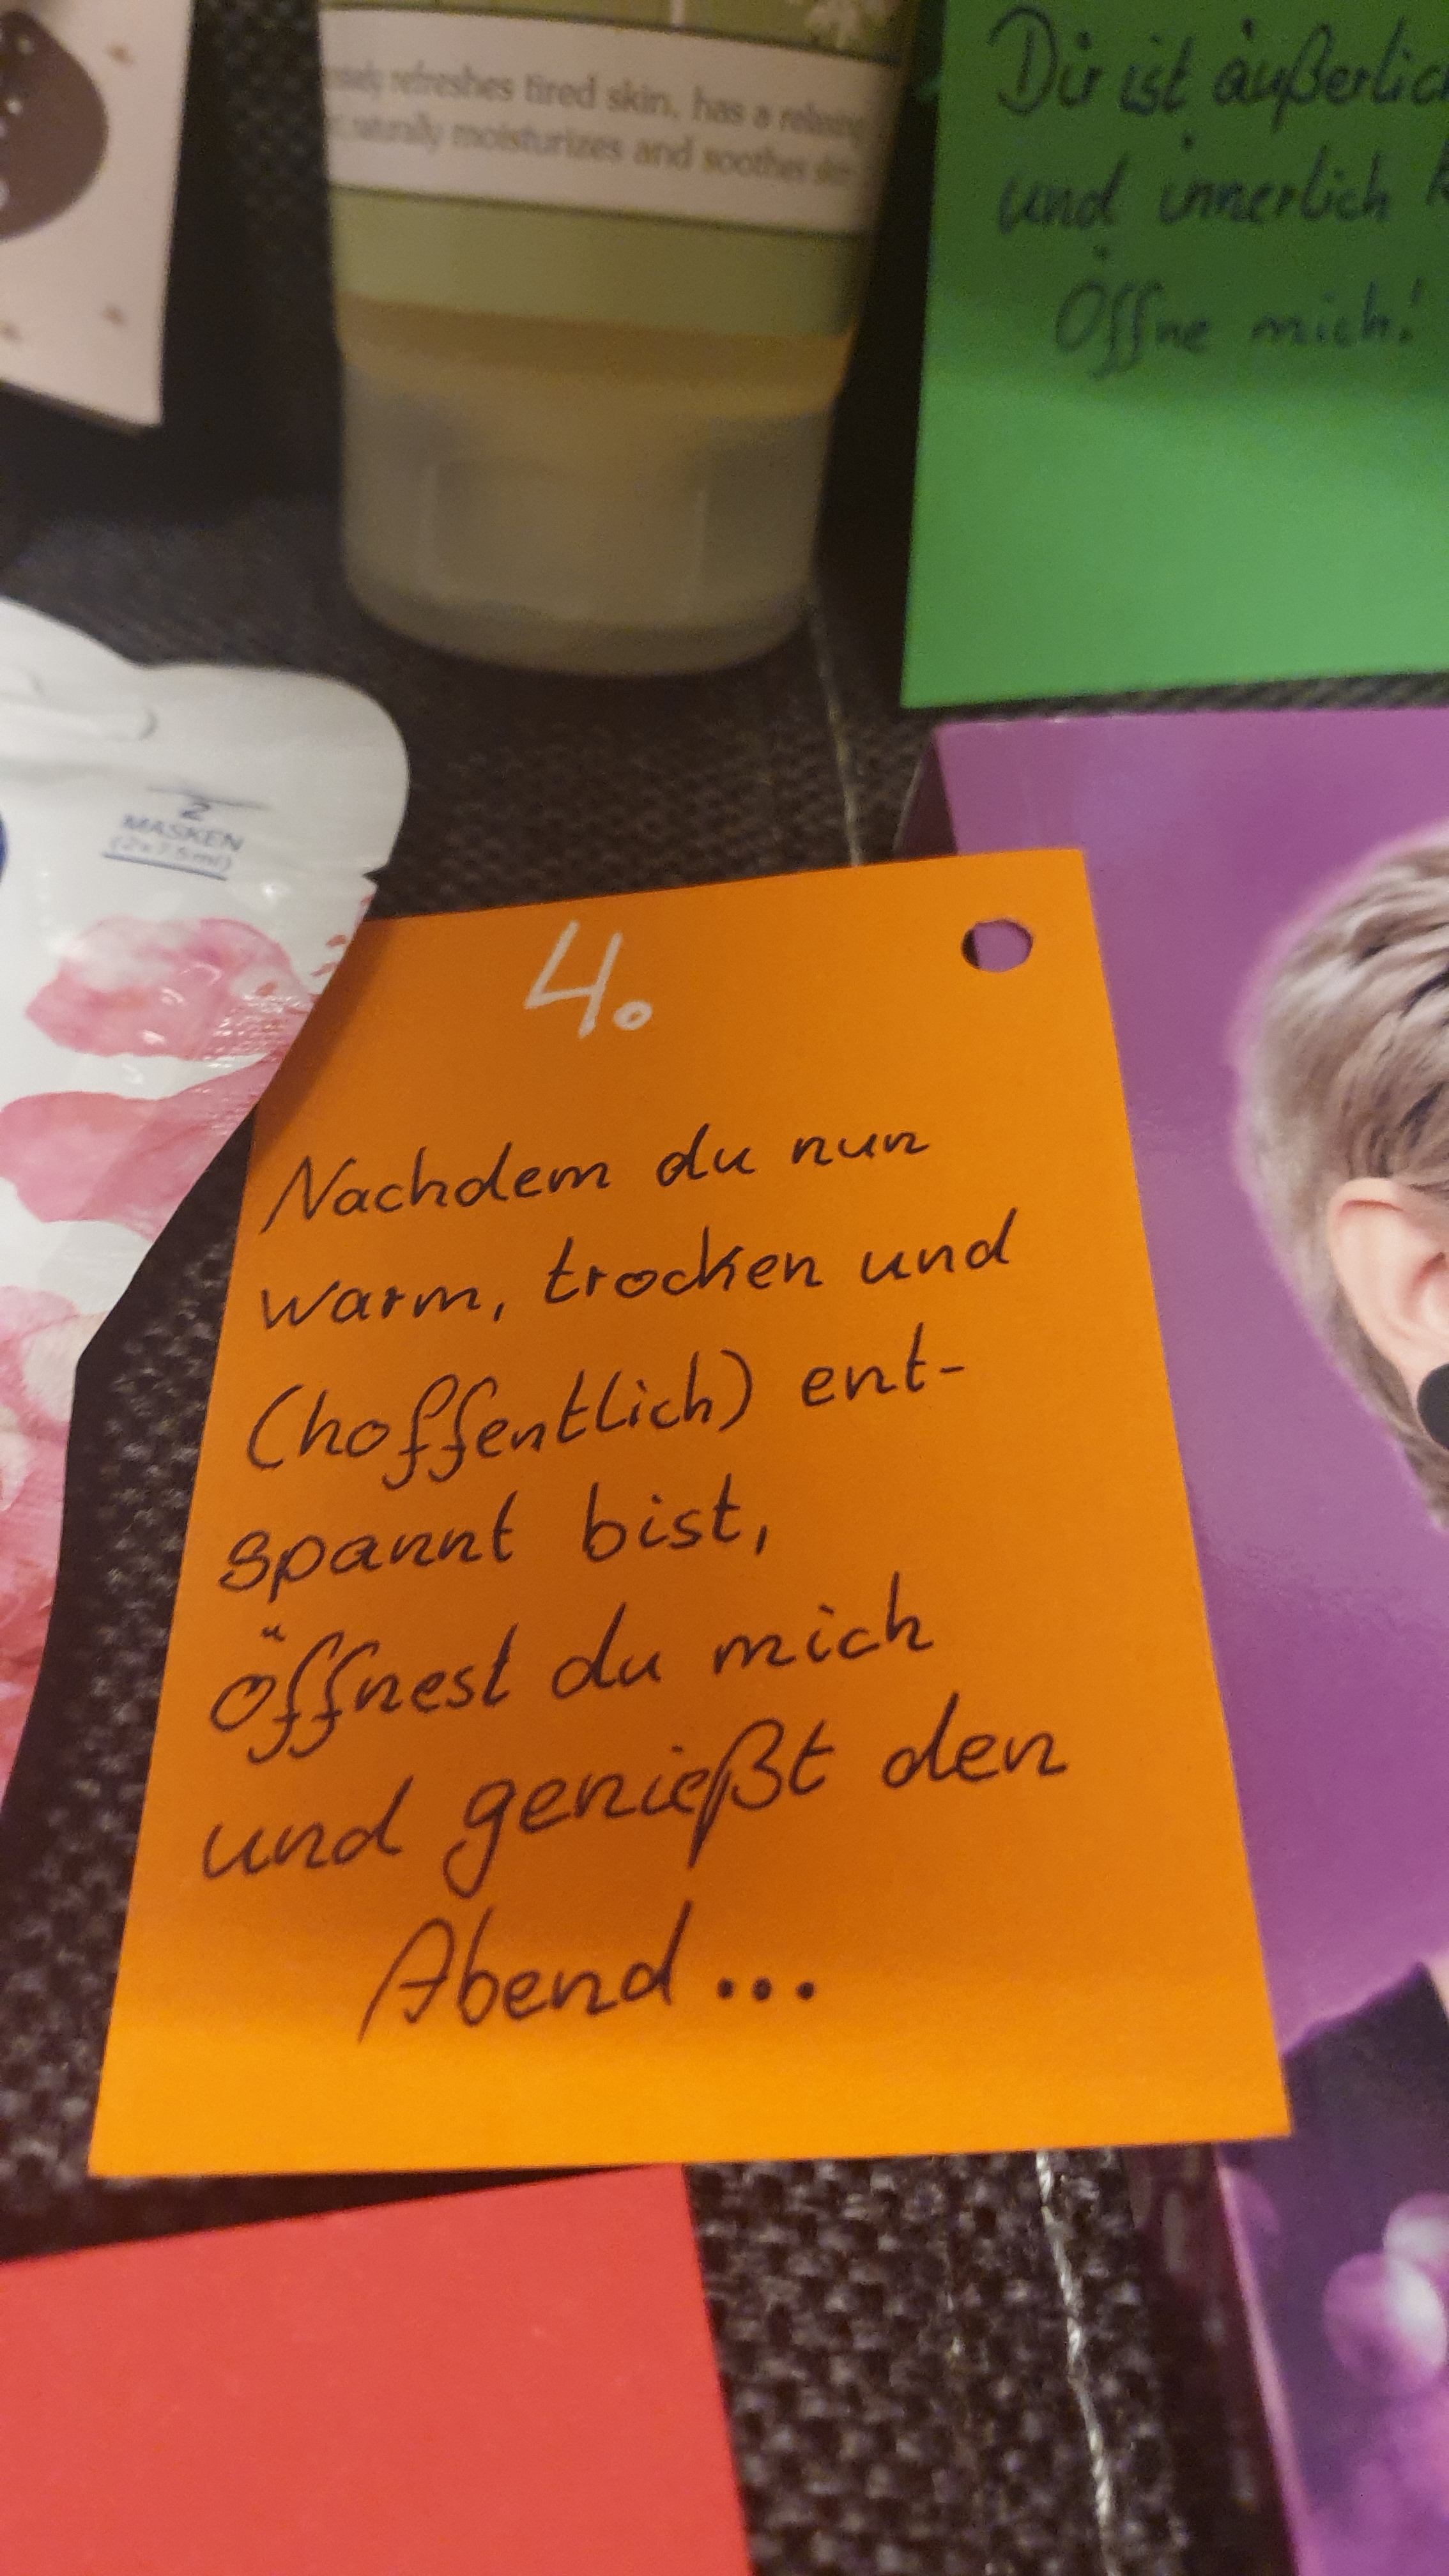 refreshes tired skin, has a relaxing
naturally moisturizes and soothes skin
Dir ist äußerlich
und innerlich
Öffne mich!
2
MASKEN
(2x7,5ml)
4.
Nachdem du nun
warm, trocken und
(hoffentlich) ent-
spannt bist,
öffnest du mich
und genießt den
Abend...